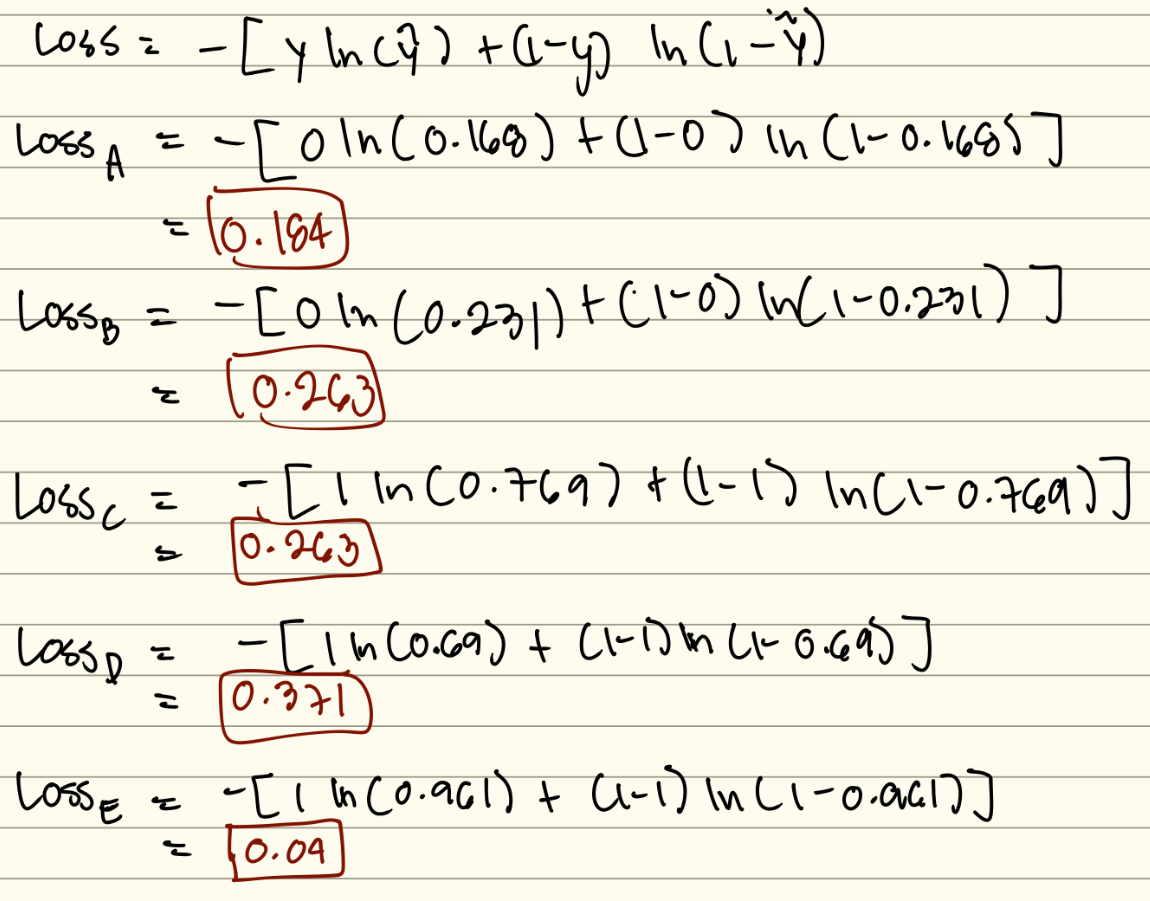 Loss = -[y ln(ŷ) + (1-y) ln(1-ŷ)
Loss_A = -[0 ln(0.168) + (1-0) ln(1-0.168)]
= 0.184
Loss_B = -[0 ln(0.231) + (1-0) ln(1-0.231)]
= 0.263
Loss_C = -[1 ln(0.769) + (1-1) ln(1-0.769)]
= 0.263
Loss_D = -[1 ln(0.69) + (1-1) ln(1-0.69)]
= 0.371
Loss_E = -[1 ln(0.961) + (1-1) ln(1-0.961)]
= 0.04